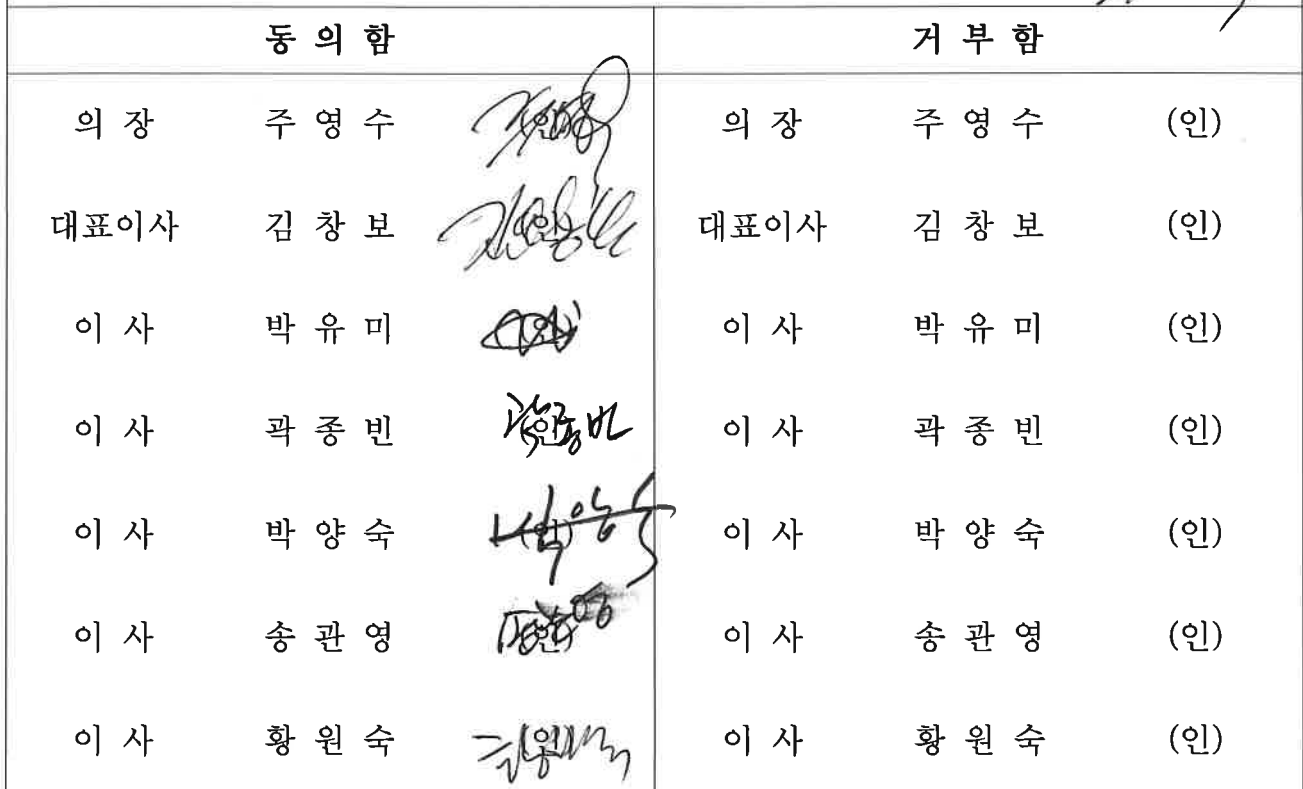 동 의 함 거 부 함
의 장 주 영 수 (인) 의 장 주 영 수 (인)
대표이사 김 창 보 (인) 대표이사 김 창 보 (인)
이 사 박 유 미 (인) 이 사 박 유 미 (인)
이 사 곽 종 빈 (인) 이 사 곽 종 빈 (인)
이 사 박 양 숙 (인) 이 사 박 양 숙 (인)
이 사 송 관 영 (인) 이 사 송 관 영 (인)
이 사 황 원 숙 (인) 이 사 황 원 숙 (인)